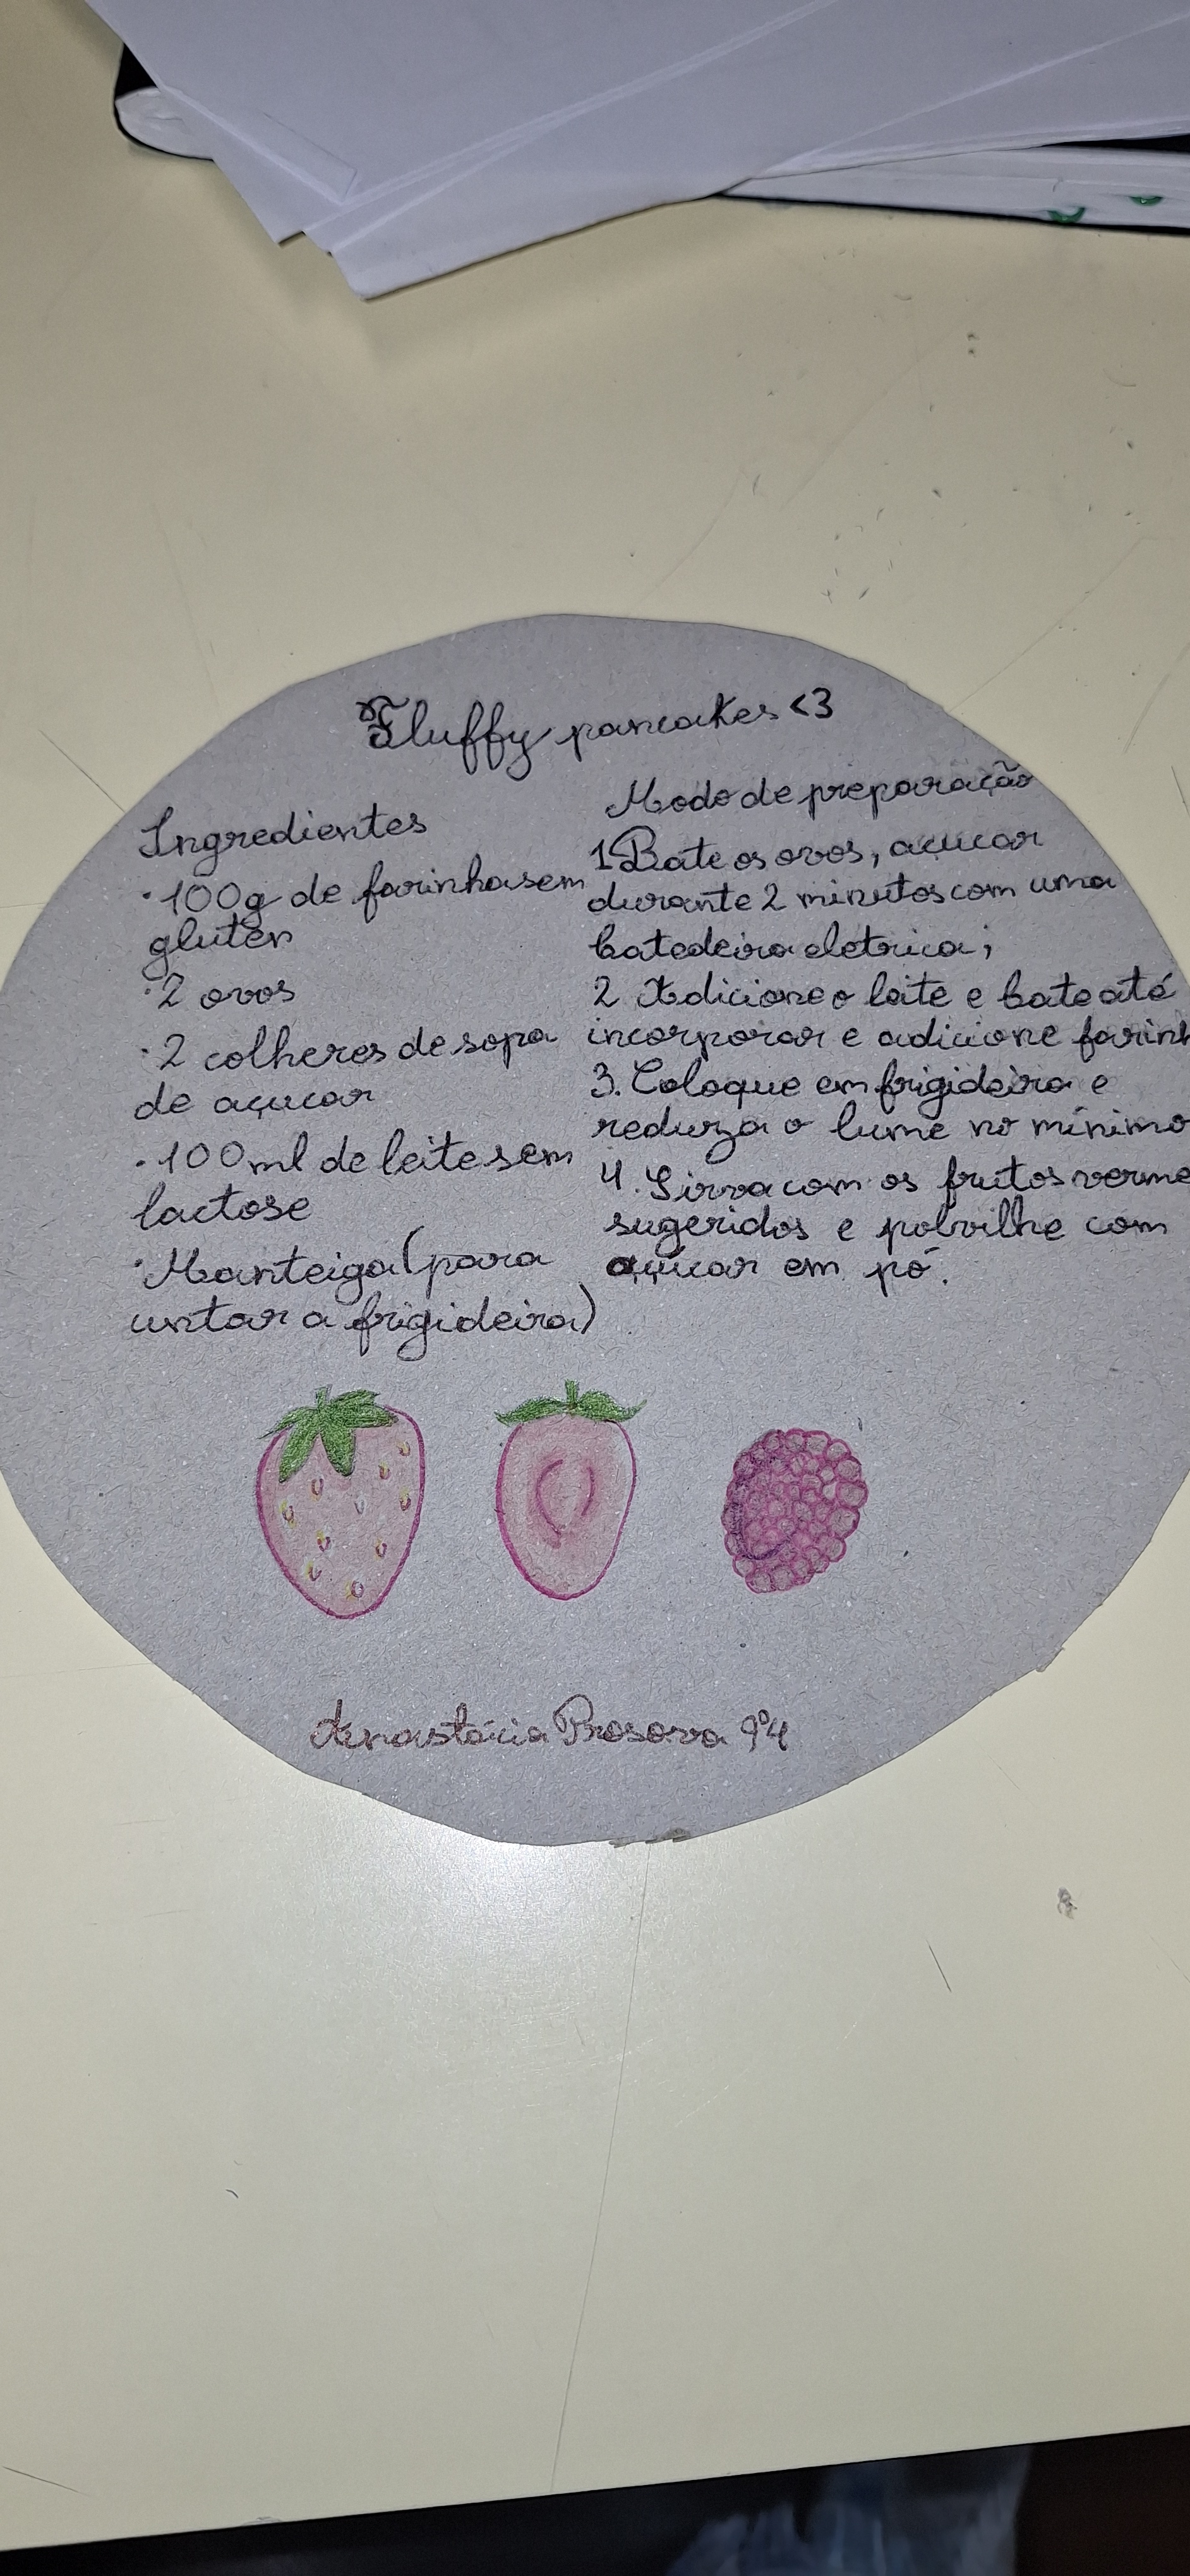 Fluffy pancakes <3
Ingredientes
·100g de farinha sem
gluten
·2 ovos
·2 colheres de sopa
de açucar
·100ml de leite sem
lactose
·Manteiga (para
untar a frigideira)
Modo de preparação
1 Bate os ovos, açucar
durante 2 minutos com uma
batedeira eletrica;
2 Adicione o leite e bate até
incorporar e adicione farinh
3. Coloque em frigideira e
reduza o lume no mínimo
4. Sirva com os frutos verme
sugeridos e polvilhe com
açúcar em pó.
Anastácia Prosova 9º4